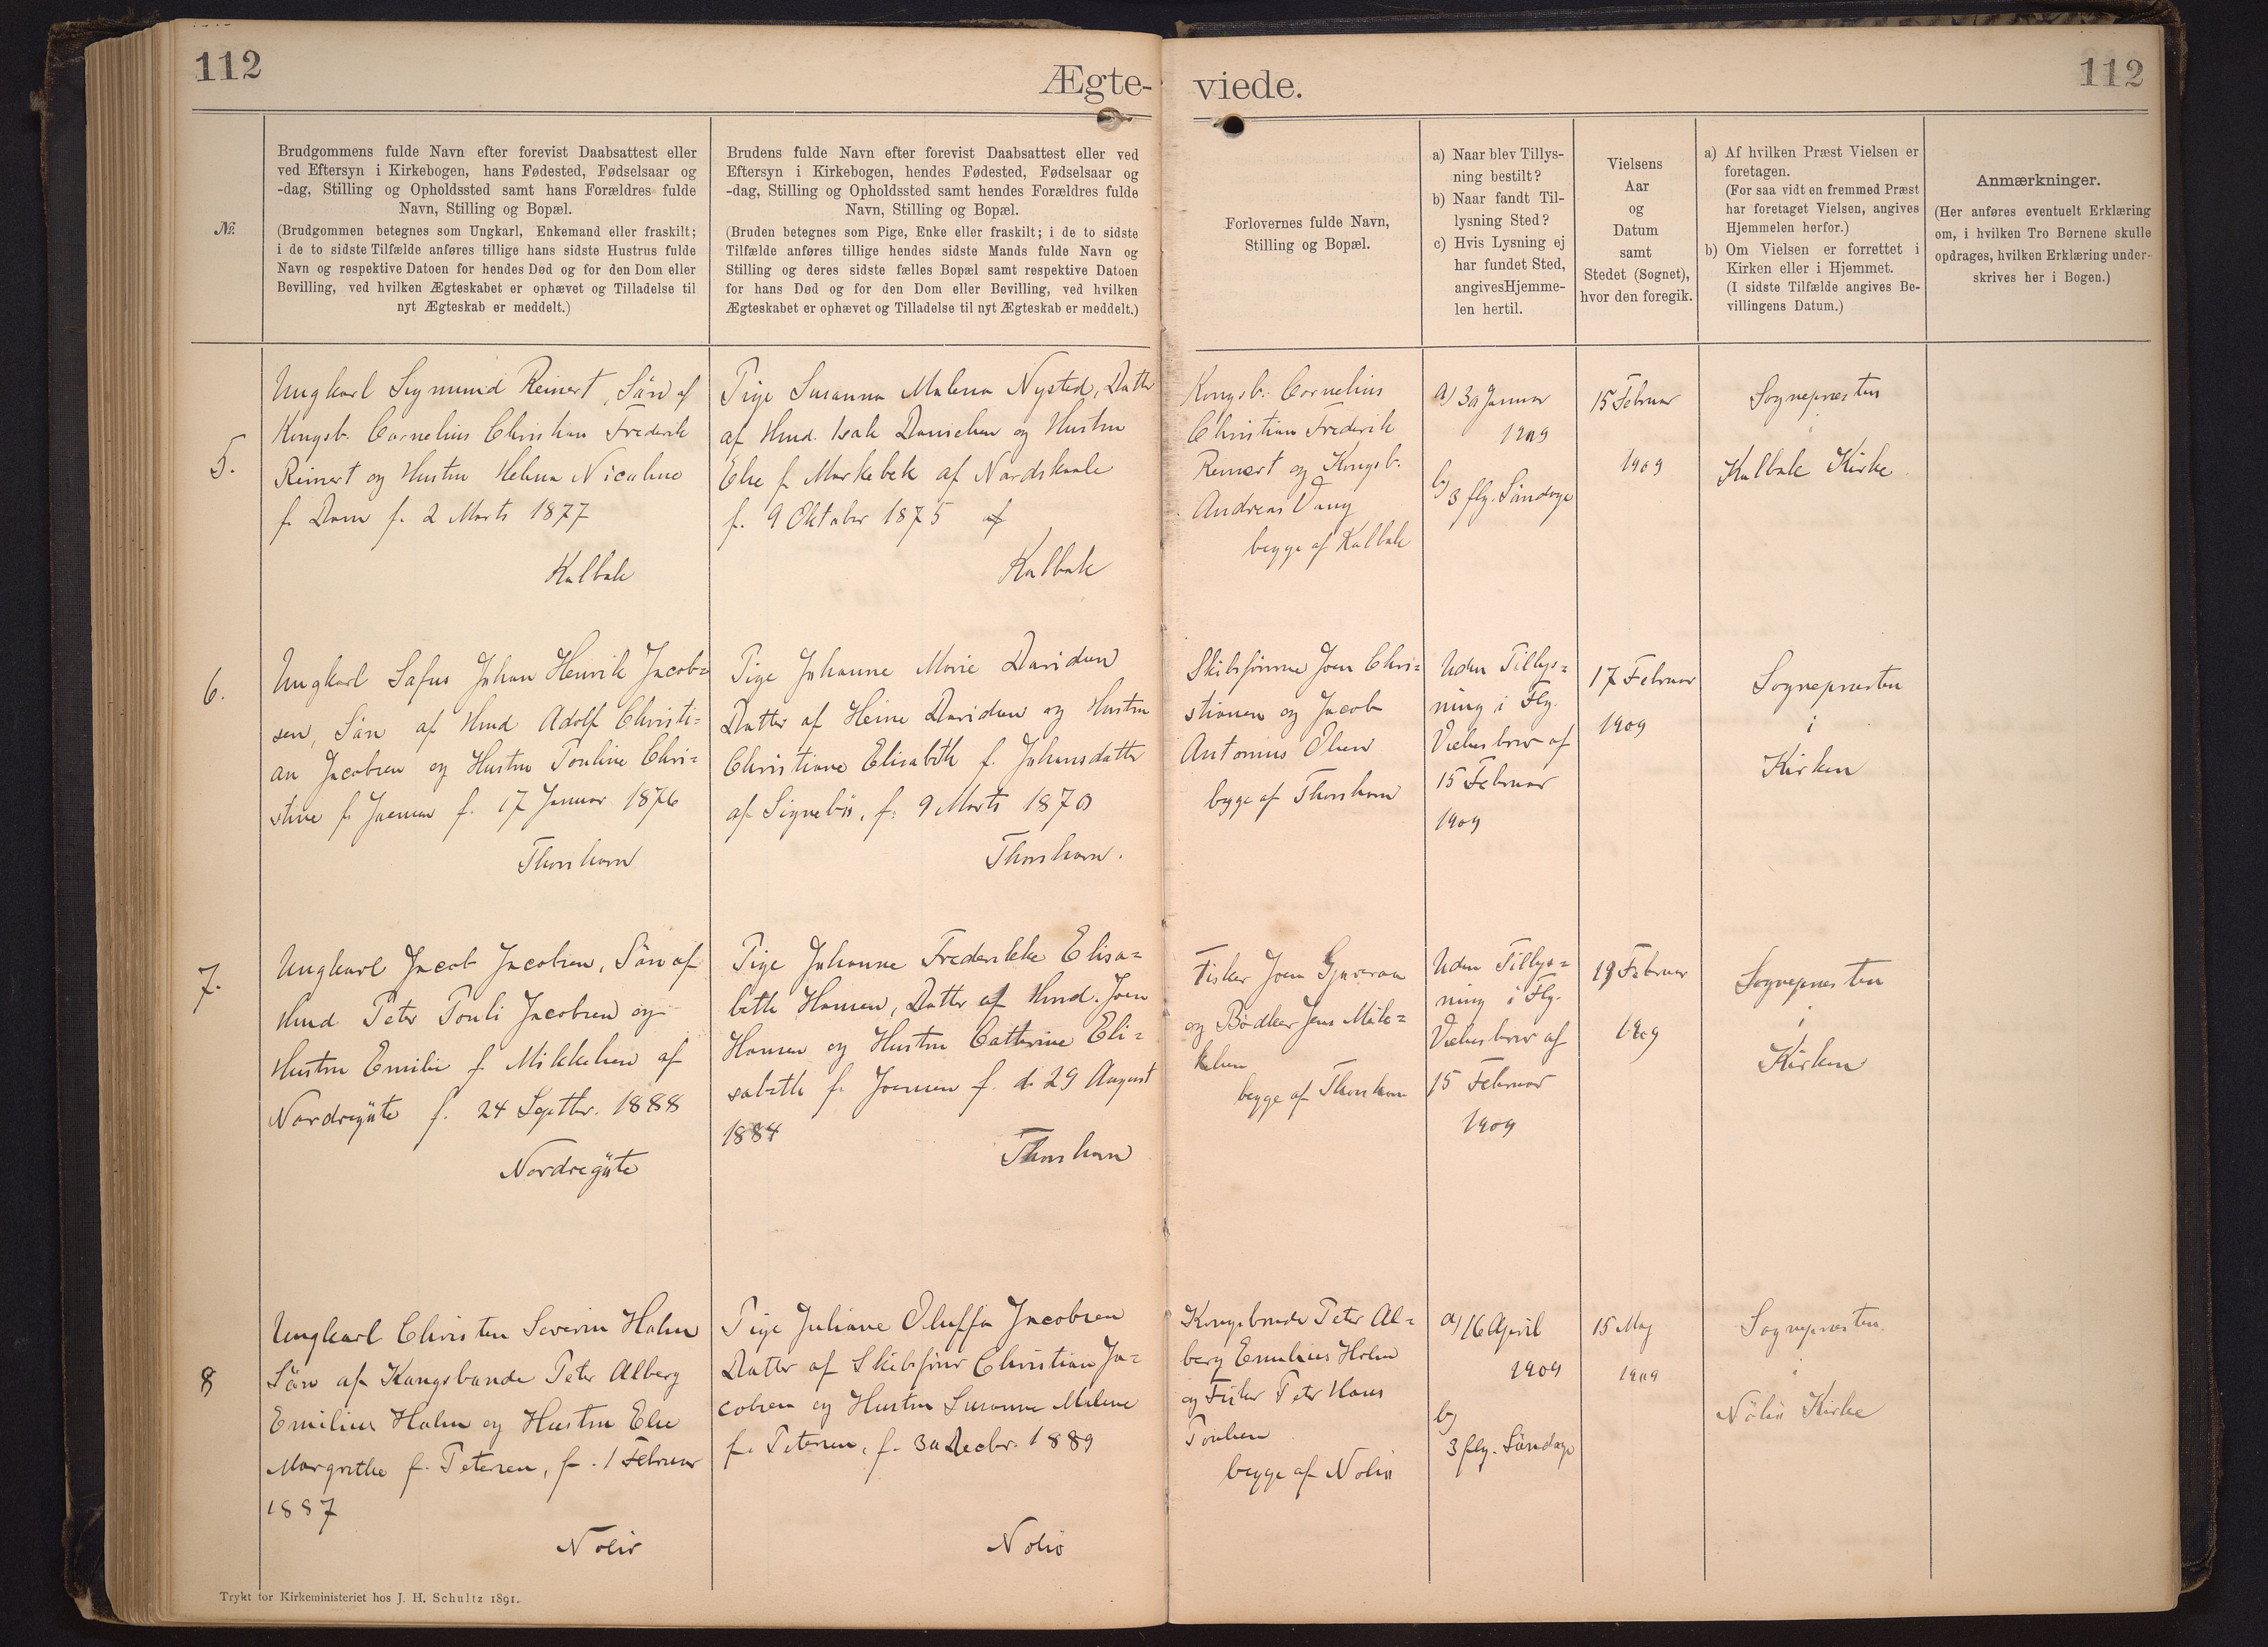 112
Ægte-
viede.
112
№
Brudgommens fulde Navn efter forevist Daabsattest eller
ved Eftersyn i Kirkebogen, hans Fødested, Fødselsaar og
-dag, Stilling og Opholdssted samt hans Forældres fulde
Navn, Stilling og Bopæl.
(Brudgommen betegnes som Ungkarl, Enkemand eller fraskilt;
i de to sidste Tilfælde anføres tillige hans sidste Hustrus fulde
Navn og respektive Datoen for hendes Død og for den Dom eller
Bevilling, ved hvilken Ægteskabet er ophævet og Tilladelse til
nyt Ægteskab er meddelt.)
Brudens fulde Navn efter forevist Daabsattest eller ved
Eftersyn i Kirkebogen, hendes Fødested, Fødselsaar og
-dag, Stilling og Opholdssted samt hendes Forældres fulde
Navn, Stilling og Bopæl.
(Bruden betegnes som Pige, Enke eller fraskilt; i de to sidste
Tilfælde anføres tillige hendes sidste Mands fulde Navn og
Stilling og deres sidste fælles Bopæl samt respektive Datoen
for hans Død og for den Dom eller Bevilling, ved hvilken
Ægteskabet er ophævet og Tilladelse til nyt Ægteskab er meddelt.)
Forlovernes fulde Navn,
Stilling og Bopæl.
a) Naar blev Tillys-
ning bestilt?
b) Naar fandt Til-
lysning Sted?
c) Hvis Lysning ej
har fundet Sted,
angivesHjemme-
len hertil.
Vielsens
Aar
og
Datum
samt
Stedet (Sognet),
hvor den foregik.
a) Af hvilken Præst Vielsen er
foretagen.
(For saa vidt en fremmed Præst
har foretaget Vielsen, angives
Hjemmelen herfor.)
b) Om Vielsen er forrettet i
Kirken eller i Hjemmet.
(I sidste Tilfælde angives Be-
villingens Datum.)
Anmærkninger.
(Her anføres eventuelt Erklæring
om, i hvilken Tro Børnene skulle
opdrages, hvilken Erklæring under-
skrives her i Bogen.)
5.
Ungkarl Sigmund Reinert, Sön af
Kongsb. Cornelius Christian Frederik
Reinert og Hustru Helena Nicoline
f. Dam f. 2 Marts 1877
Kalbak
Pige Susanna Malena Nysted, Datter
af Hmd. Isak Danielsen og Hustru
Else f. Morkebek af Nordskaale
f. 9 Oktober 1875 af
Kalbak
Kongsb. Cornelius
Christian Frederik
Reinert og Kongsb.
Andreas Vang
begge af Kalbak
a) 30 Januar
1909
b) 3 flg. Söndage
15 Februar
1909
Sognepræsten
i
Kalbak Kirke
6.
Ungkarl Sofus Johan Henrik Jacob=
sen, Sön af Hmd Adolf Christi=
an Jacobsen og Hustru Pouline Chri=
stine f. Joensen f. 17 Januar 1876
Thorshavn
Pige Johanne Marie Davidsen
Datter af Heine Davidsen og Hustru
Christiane Elisabeth f. Johansdatter
af Signebö, f. 9 Marts 1870
Thorshavn.
Skibsförerne Joen Chri=
stiansen og Jacob
Antonius Olsen
begge af Thorshavn
Uden Tillys=
ning i Flg.
Vielsesbrev af
15 Februar
1909
17 Februar
1909
Sognepræsten
i
Kirken
7.
Ungkarl Jacob Jacobsen, Sön af
Hmd Peter Pouli Jacobsen og
Hustru Emilie f. Mikkelsen af
Nordregöte f. 24 Septbr. 1888
Nordregöte
Pige Johanne Frederikke Elisa=
beth Hansen, Datter af Hmd. Joen
Hansen og Hustru Catherine Eli=
sabeth f. Joensen f. d. 29 August
1884
Thorshavn
Fisker Joen
og Bødker Jens Mik=
kelsen
begge af Thorshavn
Uden Tillys=
ning i Flg.
Vielsesbrev af
15 Februar
1909
19 Februar
1909
Sognepræsten
i
Kirken
8
Ungkarl Christen Severin Holm
Sön af Kongsbonde Peter Alberg
Emilius Holm og Hustru Else
Margrethe f. Petersen, f. 1 Februar
1887
Nolsö
Pige Juliane Oluffa Jacobsen
Datter af Skibsförer Christian Ja=
cobsen og Hustru Susanne Malene
f. Petersen, f. 30 Decbr. 1889
Nolsö
Kongsbonde Peter Al=
berg Emilius Holm
og Fisker Peter Hans
Poulsen
begge af Nolsö
a) 16 April
1909
b)
3 flg. Söndage
15 Maj
1909
Sognepræsten
i
Nölsö Kirke
Trykt for Kirkeministeriet hos J. H. Schultz 1891.